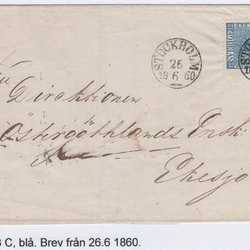 STOCKHOLM
26
6
60
Direktionen
Östergöthlands Ensk
Eksjö
C, blå. Brev från 26.6 1860.